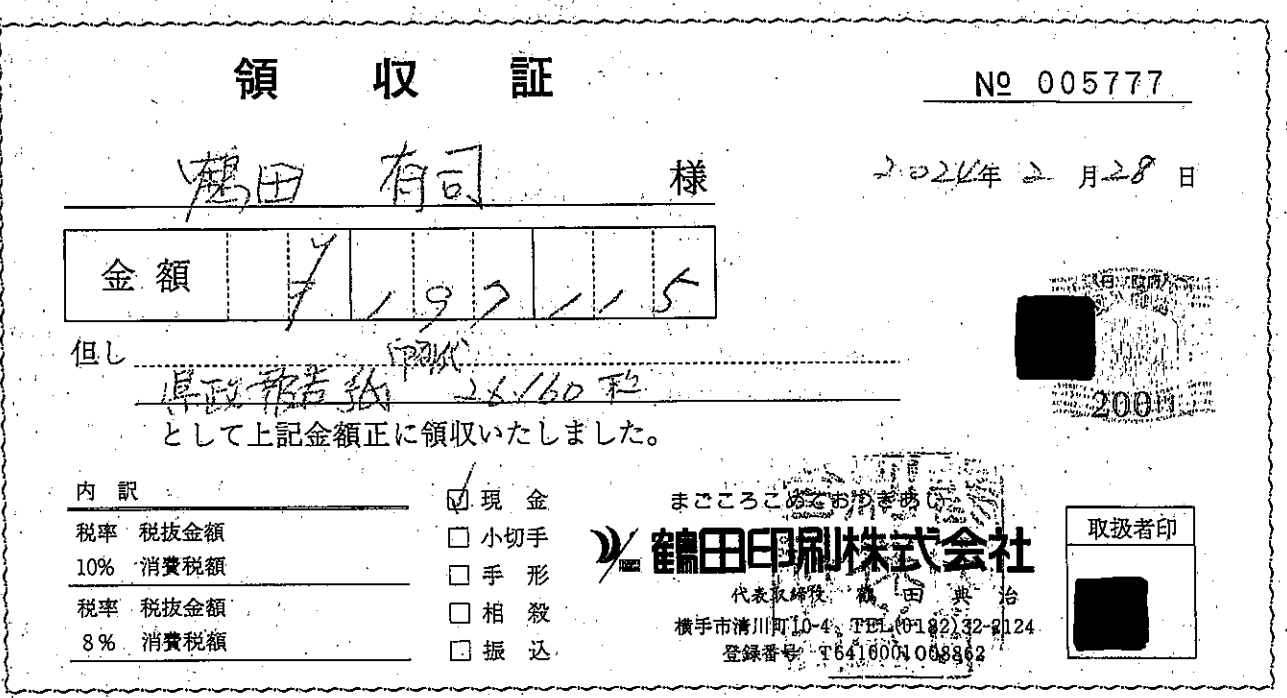 領 収 証
№ 005777
鶴田 有司 様
2024年 2 月 28 日
金 額 ¥197,115
但し 印刷代
県政報告紙 26,160 部
として上記金額正に領収いたしました。
200円
内 訳
税率 税抜金額
10% 消費税額
税率 税抜金額
8% 消費税額
☑ 現 金
□ 小切手
□ 手 形
□ 相 殺
□ 振 込
まごころこめておつきあい
鶴田印刷株式会社
代表取締役 鶴 田 典 治
横手市清川町10-4 TEL(0182)32-2124
登録番号 T6410001008862
取扱者印